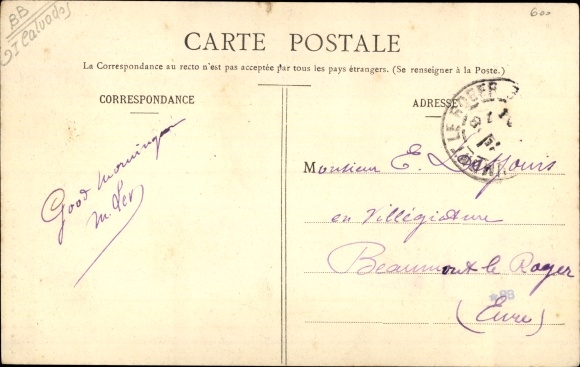 BB
St Calvados
600
CARTE POSTALE
La Correspondance au recto n'est pas acceptée par tous les pays étrangers. (Se renseigner à la Poste.)
CORRESPONDANCE
ADRESSE
Good morning
M. Ley
Monsieur E.
en Villégiature
Beaumont le Roger
BB
(Eure)